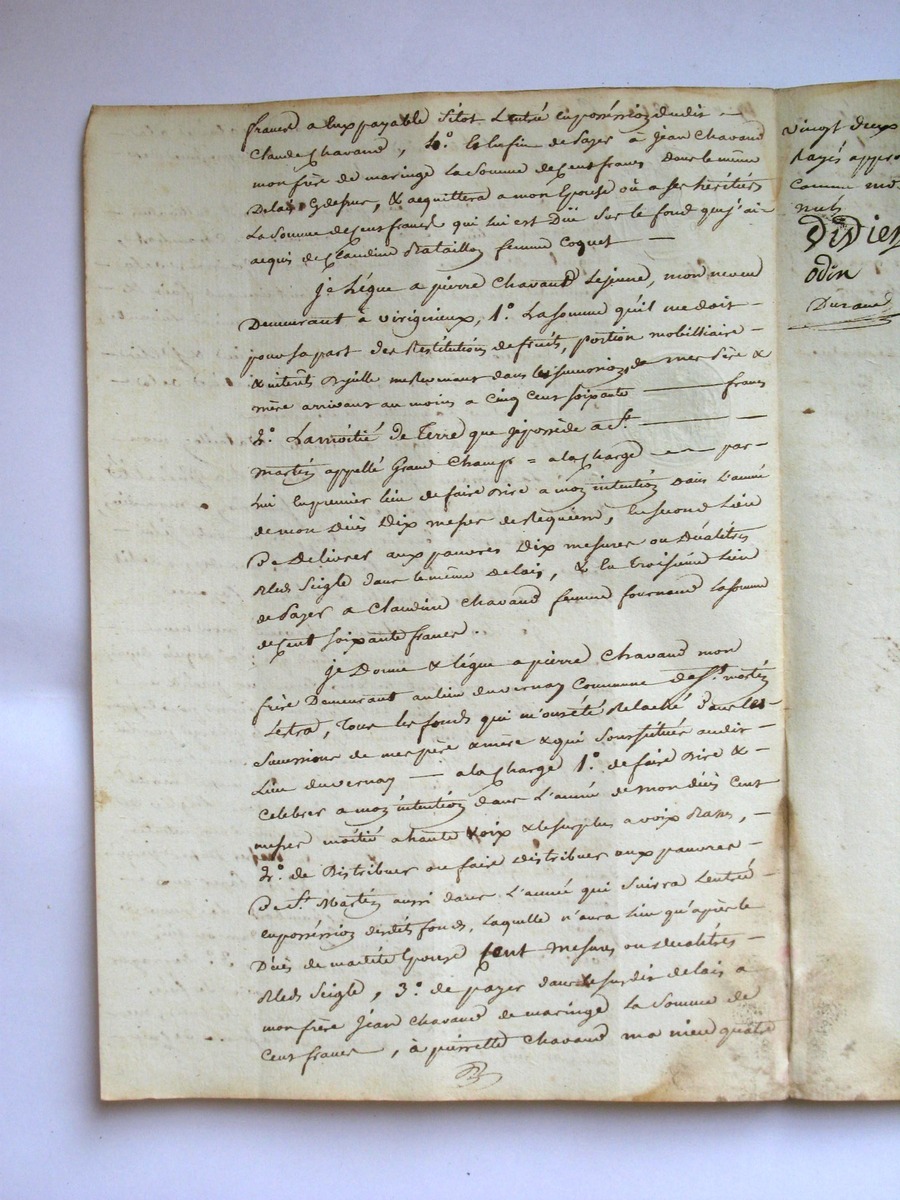 francs a eux payable sitot l'entré en possession dudit —
Claude Chavand, 4.° & enfin de payer à jean Chavand
mon frère de maringe la somme de cent francs dans le même
Delai Cydessus, & acquittera a mon Epouse où a ses héritiers
La somme de cent francs qui lui est Düe sur le fond que j'ai
acquis de Claudine Bataillon femme Coquet —
je Légue a pierre Chavand Lejeune, mon neveu
Demeurant à virigneux, 1.° La somme qu'il me doit —
pour sa part des Restitutions de fruits, portion mobilliaire —
& interêts dans les successions de mes père &
mère arrivant au moins a Cinq cent soixante —— francs
2.° La moitié de Terre que je possède a S.t ——
Martin appellé Grand Champ = a la charge —— par —
lui en premier lieu de faire dire a mon intention dans L'année
de mon Décès Dix messes de Requiem, en second Lieu
De Delivrer aux pauvres Dix mesures ou Décalitres
Bled Seigle dans le même delais, & En Troisième Lieu
de payer a Claudine Chavand femme fournand La somme
de Cent soixante francs.
je Donne & lègue a pierre Chavand mon
frère Demeurant au lieu du vernay Commune de S.t martin
Lestra, Tous les fonds qui m'ont été Relaché dans les —
Successions de mes père & mère & qui sont situés audit —
Lieu du vernay — a la charge 1.° de faire dire & —
celebrer a mon intention dans L'année de mon décès Cent
messes moitié a haute voix & le surplus a voix Basse, —
2.° de Distribuer ou faire distribuer aux pauvres —
De S.t Martin aussi dans L'année qui suivra L'entrée —
en possession desdits fonds, Laquelle n'aura Lieu qu'après le
Décès de madite Epouse Cent mesures ou decalitres —
Bled Seigle, 3.° de payer dans le susdit delais a
mon frère Jean Chavand de maringe La somme de
Cent francs, à pierrette Chavand ma niece quatre
vingt deux
Rayés
comme
nuls
Didier
odin
Durand